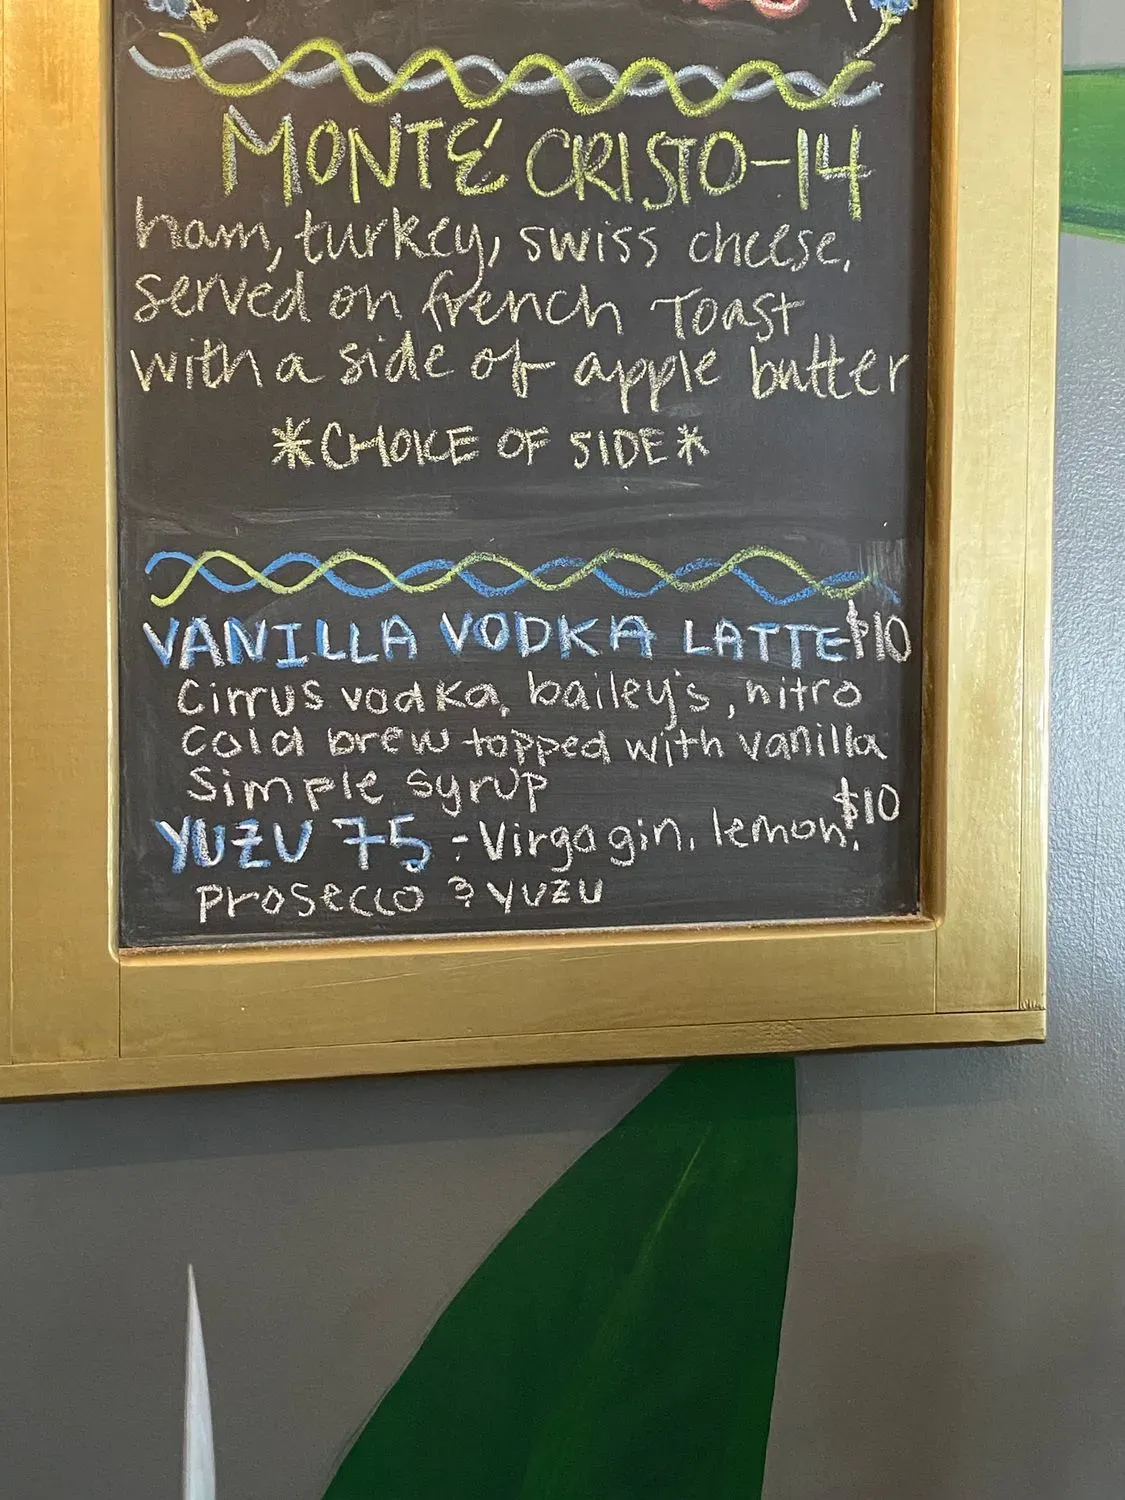 MONTE CRISTO-14
ham, turkey, swiss cheese,
served on french Toast
with a side of apple butter
*CHOICE OF SIDE*
VANILLA VODKA LATTE $10
Cirrus vodka, bailey's, nitro
cold brew topped with vanilla
simple syrup
$10
YUZU 75 - Virgo gin, lemon,
prosecco & YUZU